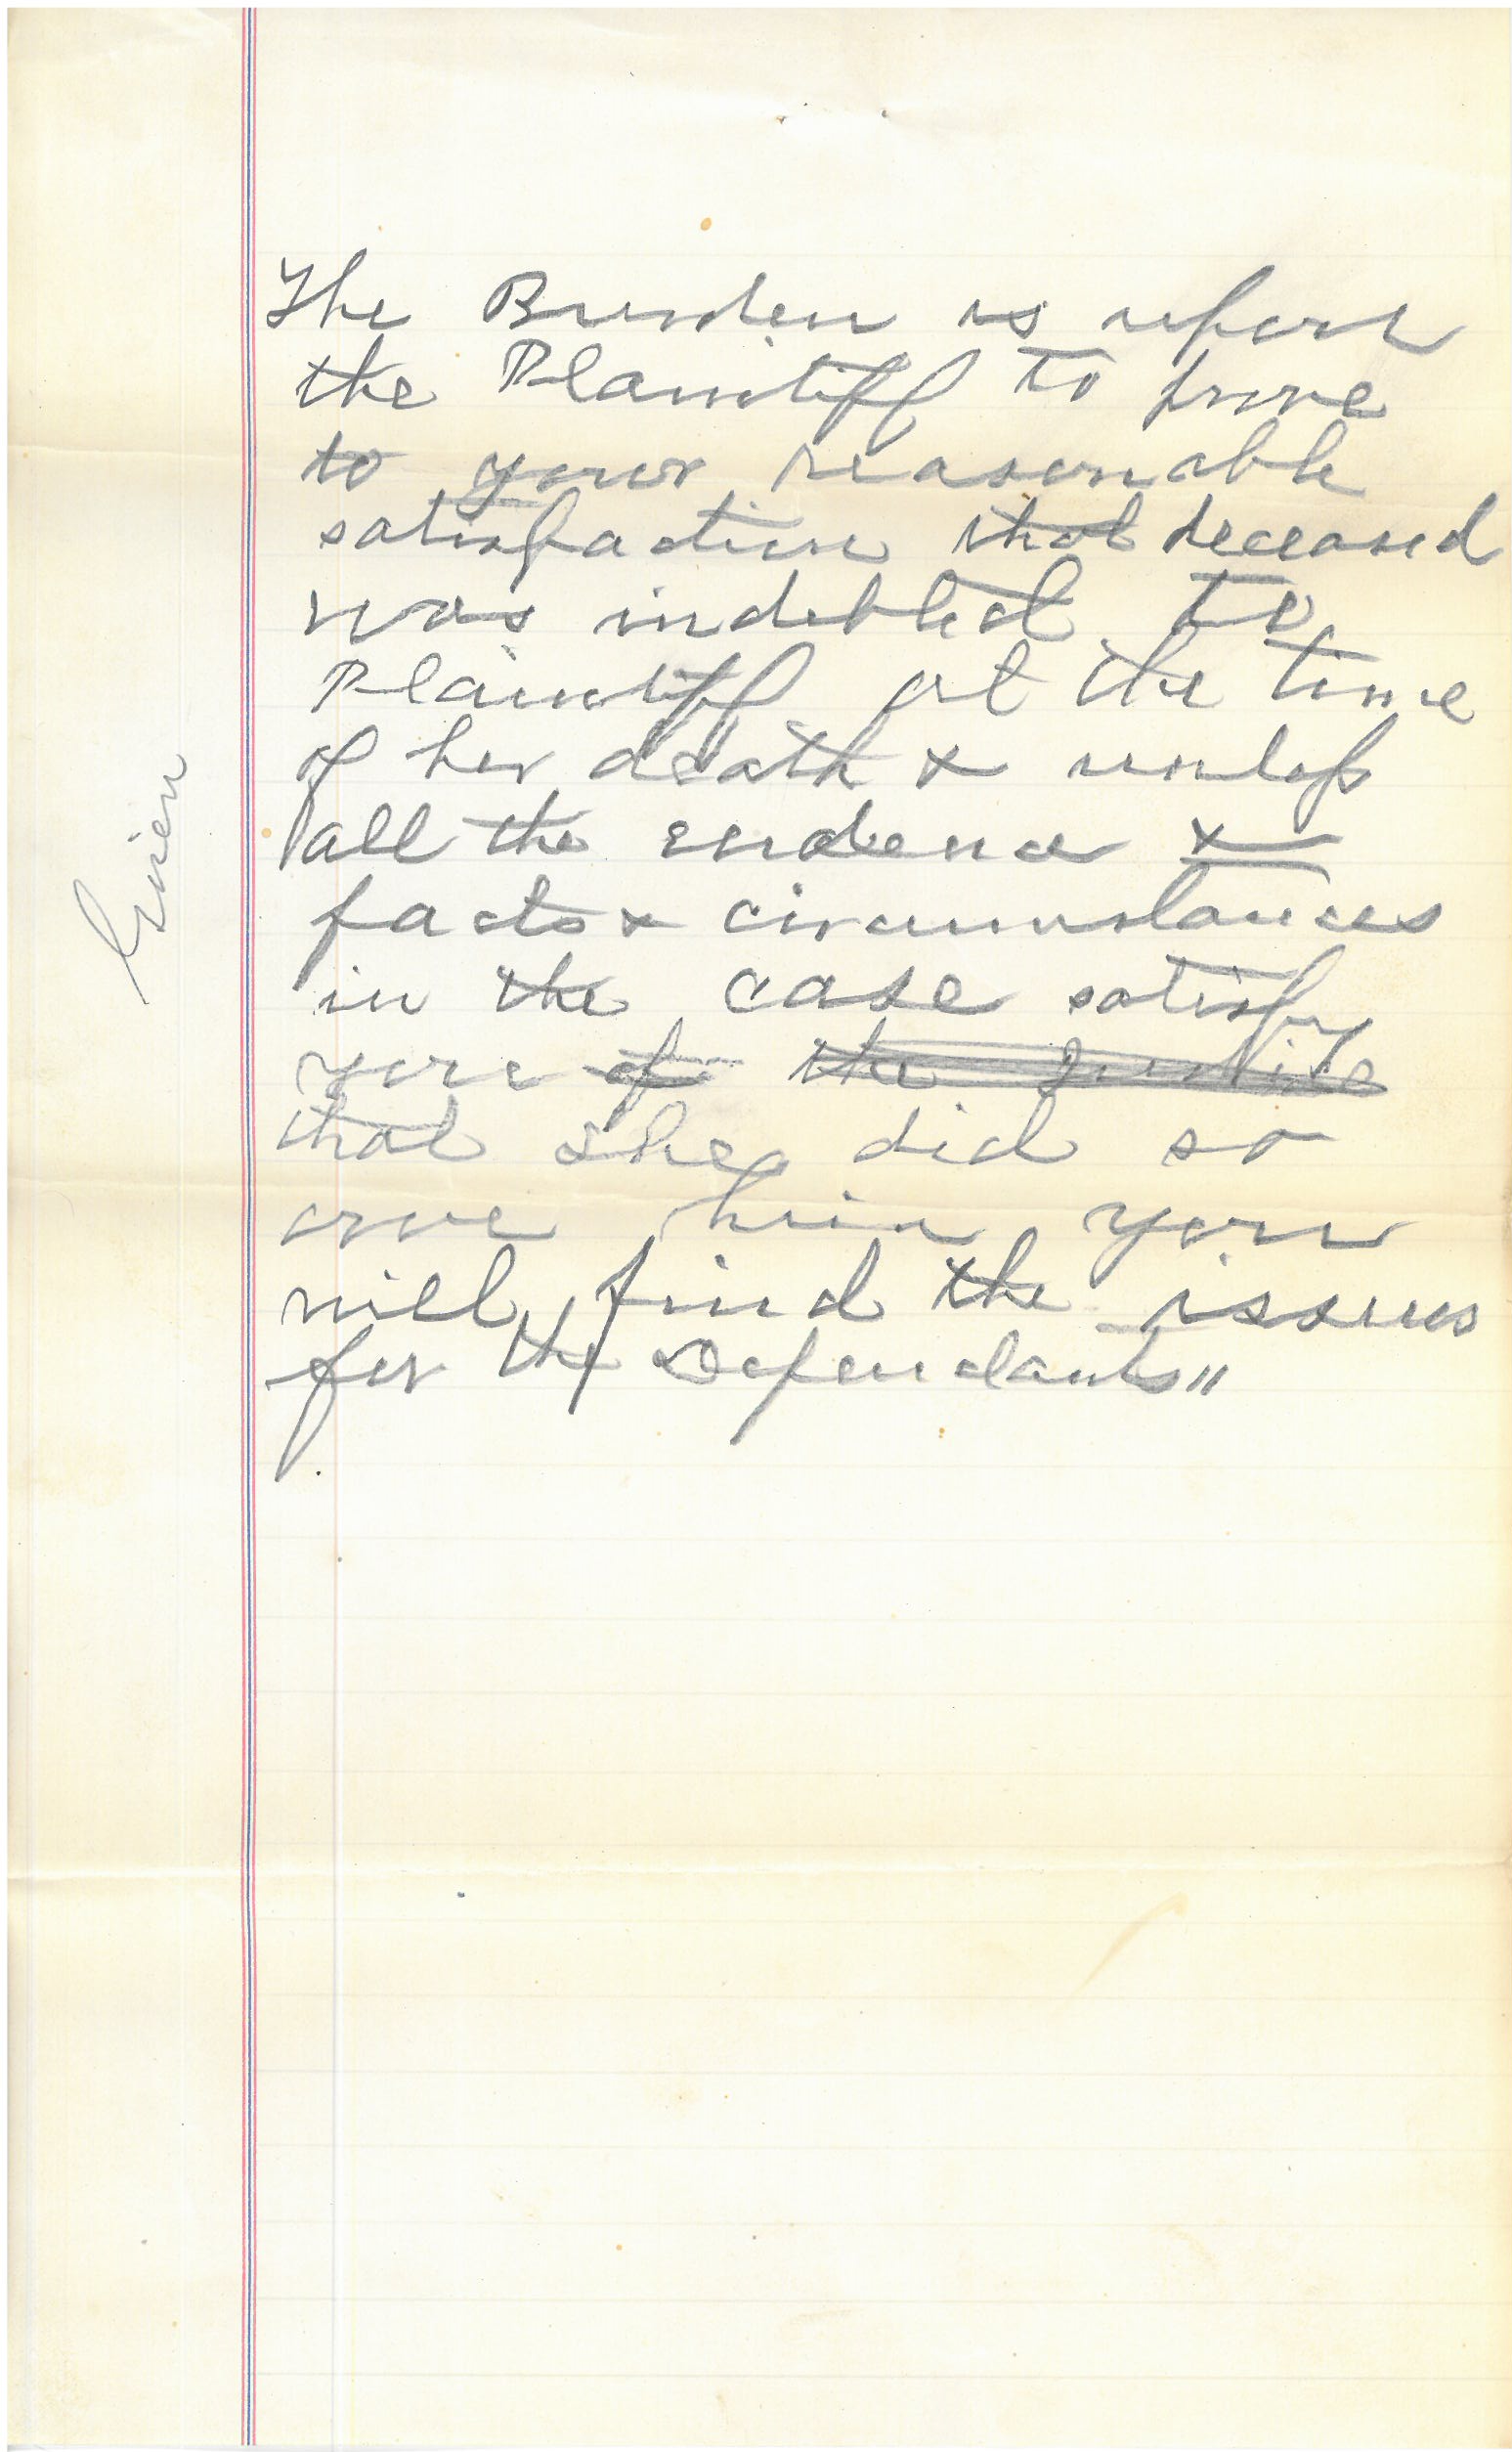 The Burden is upon
the Plaintiff to prove
to your reasonable
satisfaction that deceased
was indebted to
Plaintiff at the time
of her death & unless
all the evidence &
facts & circumstances
in the case satisfy
you of the justice
that she did so
owe him you
will find the issues
for the Defendants"
Given